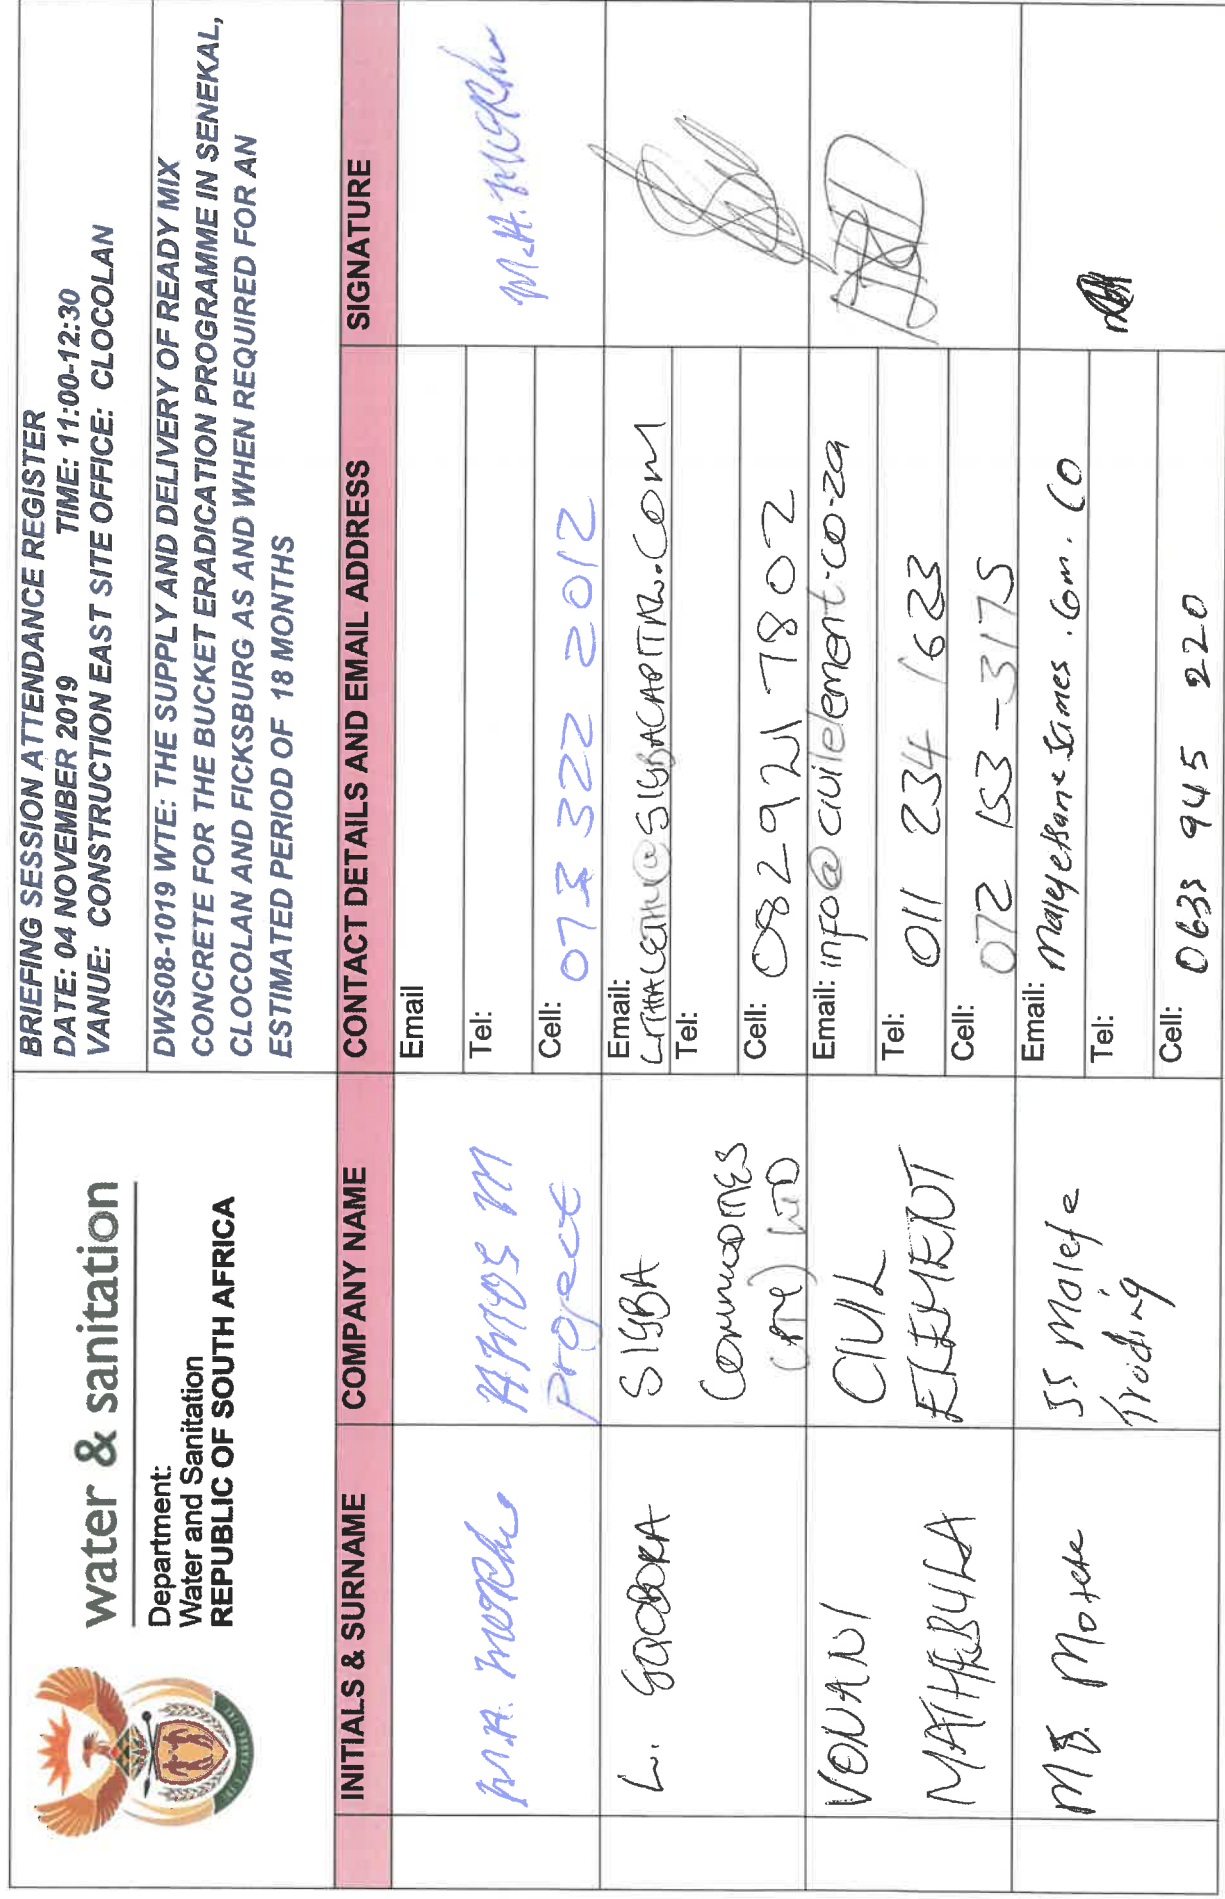 water & sanitation
Department:
Water and Sanitation
REPUBLIC OF SOUTH AFRICA
BRIEFING SESSION ATTENDANCE REGISTER
DATE: 04 NOVEMBER 2019 TIME: 11:00-12:30
VANUE: CONSTRUCTION EAST SITE OFFICE: CLOCOLAN
DWS08-1019 WTE: THE SUPPLY AND DELIVERY OF READY MIX
CONCRETE FOR THE BUCKET ERADICATION PROGRAMME IN SENEKAL,
CLOCOLAN AND FICKSBURG AS AND WHEN REQUIRED FOR AN
ESTIMATED PERIOD OF 18 MONTHS
INITIALS & SURNAME COMPANY NAME CONTACT DETAILS AND EMAIL ADDRESS SIGNATURE
M.A.
AMOS M
project
Email
Tel:
Cell: 073 322 2012
M.A.
L.
SIYBA
(PTY) LTD
Email:
Tel:
Cell: 082 921 7802
VONANI
MATHEBULA
CIVIL
ELEMENT
Email: info@civilelement.co.za
Tel: 011 234 1623
Cell: 072 153-3175
MB
Molefe
Trading
Email:
Tel:
Cell: 0633 945 220